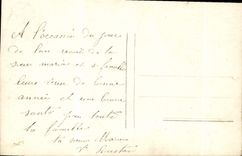 A l'occasion du jour
de l'an reçois de ta
sœur marie et sa famille
leurs vœux de bonne
année et une bonne
santé pour toute
ta famille
ta sœur Marie